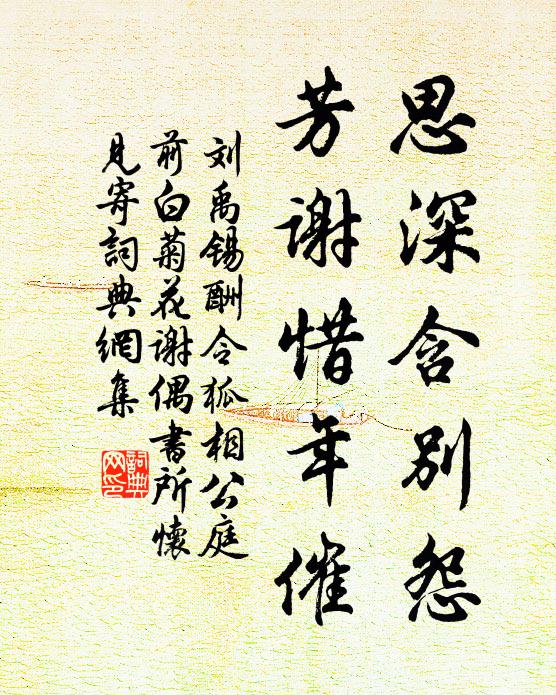 思深含别怨
芳谢惜年催
刘禹锡酬令狐相公庭
前白菊花谢偶书所懷
见寄詞典網集
詞典
网印